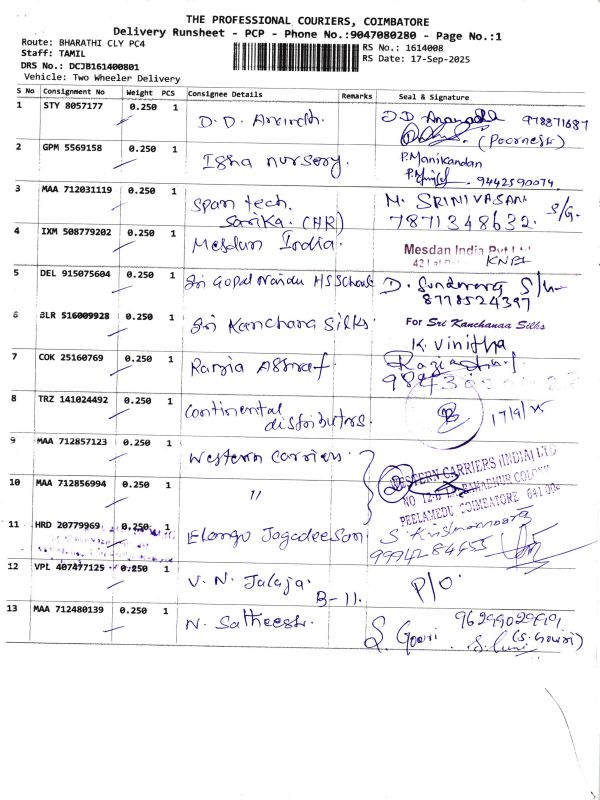 THE PROFESSIONAL COURIERS, COIMBATORE
Delivery Runsheet - PCP - Phone No.:9047080280 - Page No.:1
Route: BHARATHI CLY PC4
RS No.: 1614008
Staff: TAMIL
RS Date: 17-Sep-2025
DRS No.: DCJB161400801
Vehicle: Two Wheeler Delivery
S No Consignment No Weight PCS Consignee Details Remarks Seal & Signature
1 STY 8057177 0.250 1 D. D. Arvindh. D.D.
(Poornesh)
2 GPM 5569158 0.250 1 Isha nursery. P. Manikandan
9442590074
3 MAA 712031119 0.250 1 Span tech. M. SRINIVASAN S/G.
Sarika. (HR) 7871348632.
4 IXM 508779202 0.250 1 Mesdan India. Mesdan India Pvt Ltd
5 DEL 915075604 0.250 1 Sri Gopal Naidu HS School D. Sundarraj
8778524397
6 BLR 516009928 0.250 1 Sri Kanchana Silks. For Sri Kanchanaa Silks
K. Vinitha
7 COK 25160769 0.250 1 Razia Ashraf.
8 TRZ 141024492 0.250 1 Continental 17/9/25
distributors.
9 MAA 712857123 0.250 1 Western Carriers. WESTERN CARRIERS (INDIA) LTD
10 MAA 712856994 0.250 1 "
PEELAMEDU COIMBATORE 641 004
11 HRD 20779969 0.250 1 Elango Jagadeesan S. Krishnamoorthy
9994284455
12 VPL 407477125 0.250 1 V. N. Jalaja. P/O.
B-11.
13 MAA 712480139 0.250 1 N. Satheesh. S. Gowri 9629902999
(S. Gowri)